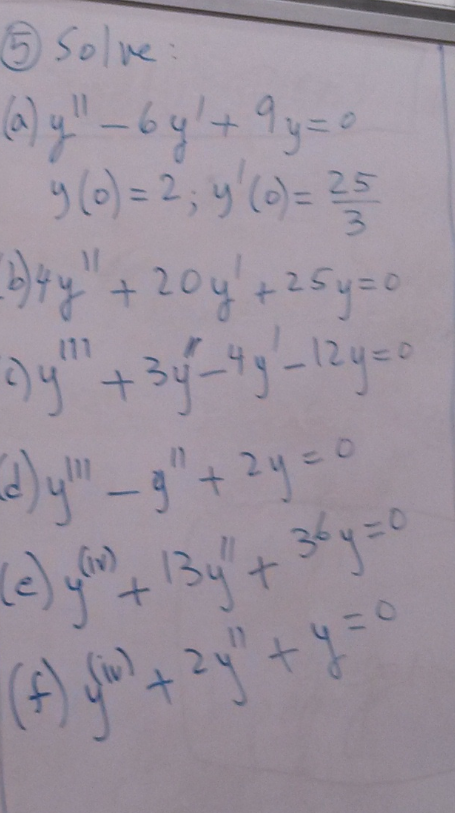 ⑤ Solve:
(a) y'' - 6y' + 9y = 0
y(0) = 2; y'(0) = 25/3
(b) 4y'' + 20y' + 25y = 0
c) y''' + 3y'' - 4y' - 12y = 0
(d) y''' - y'' + 2y = 0
(e) y^(iv) + 13y'' + 36y = 0
(f) y^(iv) + 2y'' + y = 0